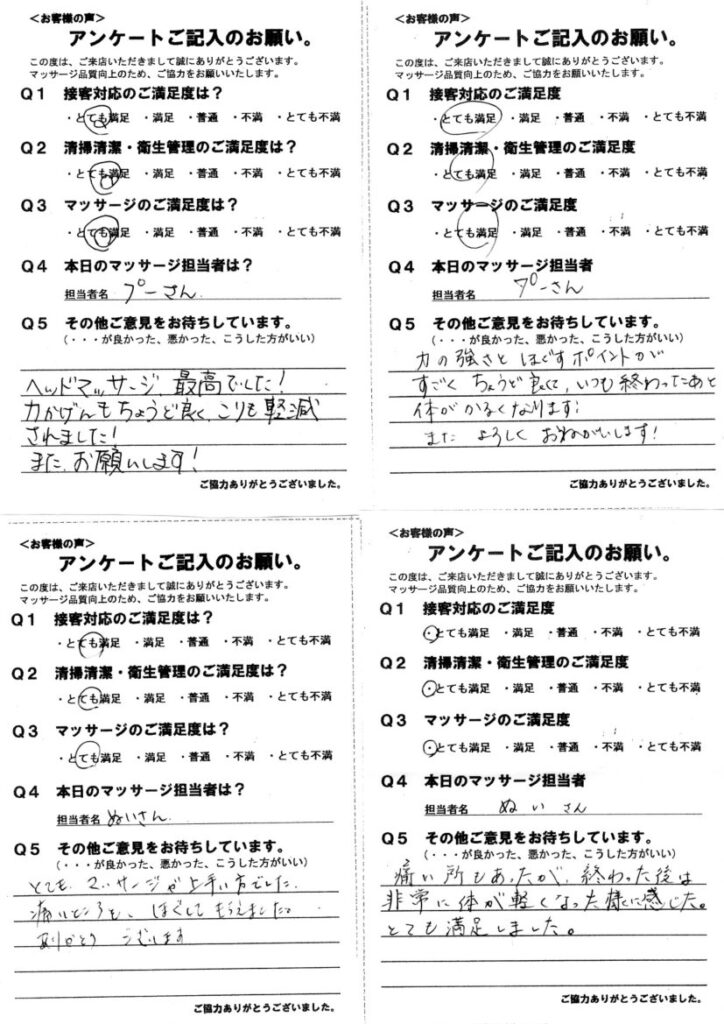 ＜お客様の声＞
アンケートご記入のお願い。
この度は、ご来店いただきまして誠にありがとうございます。
マッサージ品質向上のため、ご協力をお願いいたします。
Q１ 接客対応のご満足度は？
・とても満足 ・満足 ・普通 ・不満 ・とても不満
Q２ 清掃清潔・衛生管理のご満足度は？
・とても満足 ・満足 ・普通 ・不満 ・とても不満
Q３ マッサージのご満足度は？
・とても満足 ・満足 ・普通 ・不満 ・とても不満
Q４ 本日のマッサージ担当者は？
担当者名 プーさん
Q５ その他ご意見をお待ちしています。
（・・・が良かった、悪かった、こうした方がいい）
ヘッドマッサージ 最高でした！
力かげんもちょうど良く、こりも軽減
されました！
また、お願いします！
ご協力ありがとうございました。
＜お客様の声＞
アンケートご記入のお願い。
この度は、ご来店いただきまして誠にありがとうございます。
マッサージ品質向上のため、ご協力をお願いいたします。
Q１ 接客対応のご満足度
・とても満足 ・満足 ・普通 ・不満 ・とても不満
Q２ 清掃清潔・衛生管理のご満足度
・とても満足 ・満足 ・普通 ・不満 ・とても不満
Q３ マッサージのご満足度
・とても満足 ・満足 ・普通 ・不満 ・とても不満
Q４ 本日のマッサージ担当者
担当者名 プーさん
Q５ その他ご意見をお待ちしています。
（・・・が良かった、悪かった、こうした方がいい）
力の強さと ほぐすポイントが
すごく ちょうど良くて、いつも終わったあと
体がかるくなります；
また よろしく おねがいします！
ご協力ありがとうございました。
＜お客様の声＞
アンケートご記入のお願い。
この度は、ご来店いただきまして誠にありがとうございます。
マッサージ品質向上のため、ご協力をお願いいたします。
Q１ 接客対応のご満足度は？
・とても満足 ・満足 ・普通 ・不満 ・とても不満
Q２ 清掃清潔・衛生管理のご満足度は？
・とても満足 ・満足 ・普通 ・不満 ・とても不満
Q３ マッサージのご満足度は？
・とても満足 ・満足 ・普通 ・不満 ・とても不満
Q４ 本日のマッサージ担当者は？
担当者名 ぬいさん
Q５ その他ご意見をお待ちしています。
（・・・が良かった、悪かった、こうした方がいい）
とても マッサージが上手い方でした。
痛いところも、ほぐしてもらえました。
ありがとうございます
ご協力ありがとうございました。
＜お客様の声＞
アンケートご記入のお願い。
この度は、ご来店いただきまして誠にありがとうございます。
マッサージ品質向上のため、ご協力をお願いいたします。
Q１ 接客対応のご満足度
・とても満足 ・満足 ・普通 ・不満 ・とても不満
Q２ 清掃清潔・衛生管理のご満足度
・とても満足 ・満足 ・普通 ・不満 ・とても不満
Q３ マッサージのご満足度
・とても満足 ・満足 ・普通 ・不満 ・とても不満
Q４ 本日のマッサージ担当者
担当者名 ぬいさん
Q５ その他ご意見をお待ちしています。
（・・・が良かった、悪かった、こうした方がいい）
痛い所もあったが、終わった後は
非常に体が軽くなった様に感じた。
とても満足しました。
ご協力ありがとうございました。